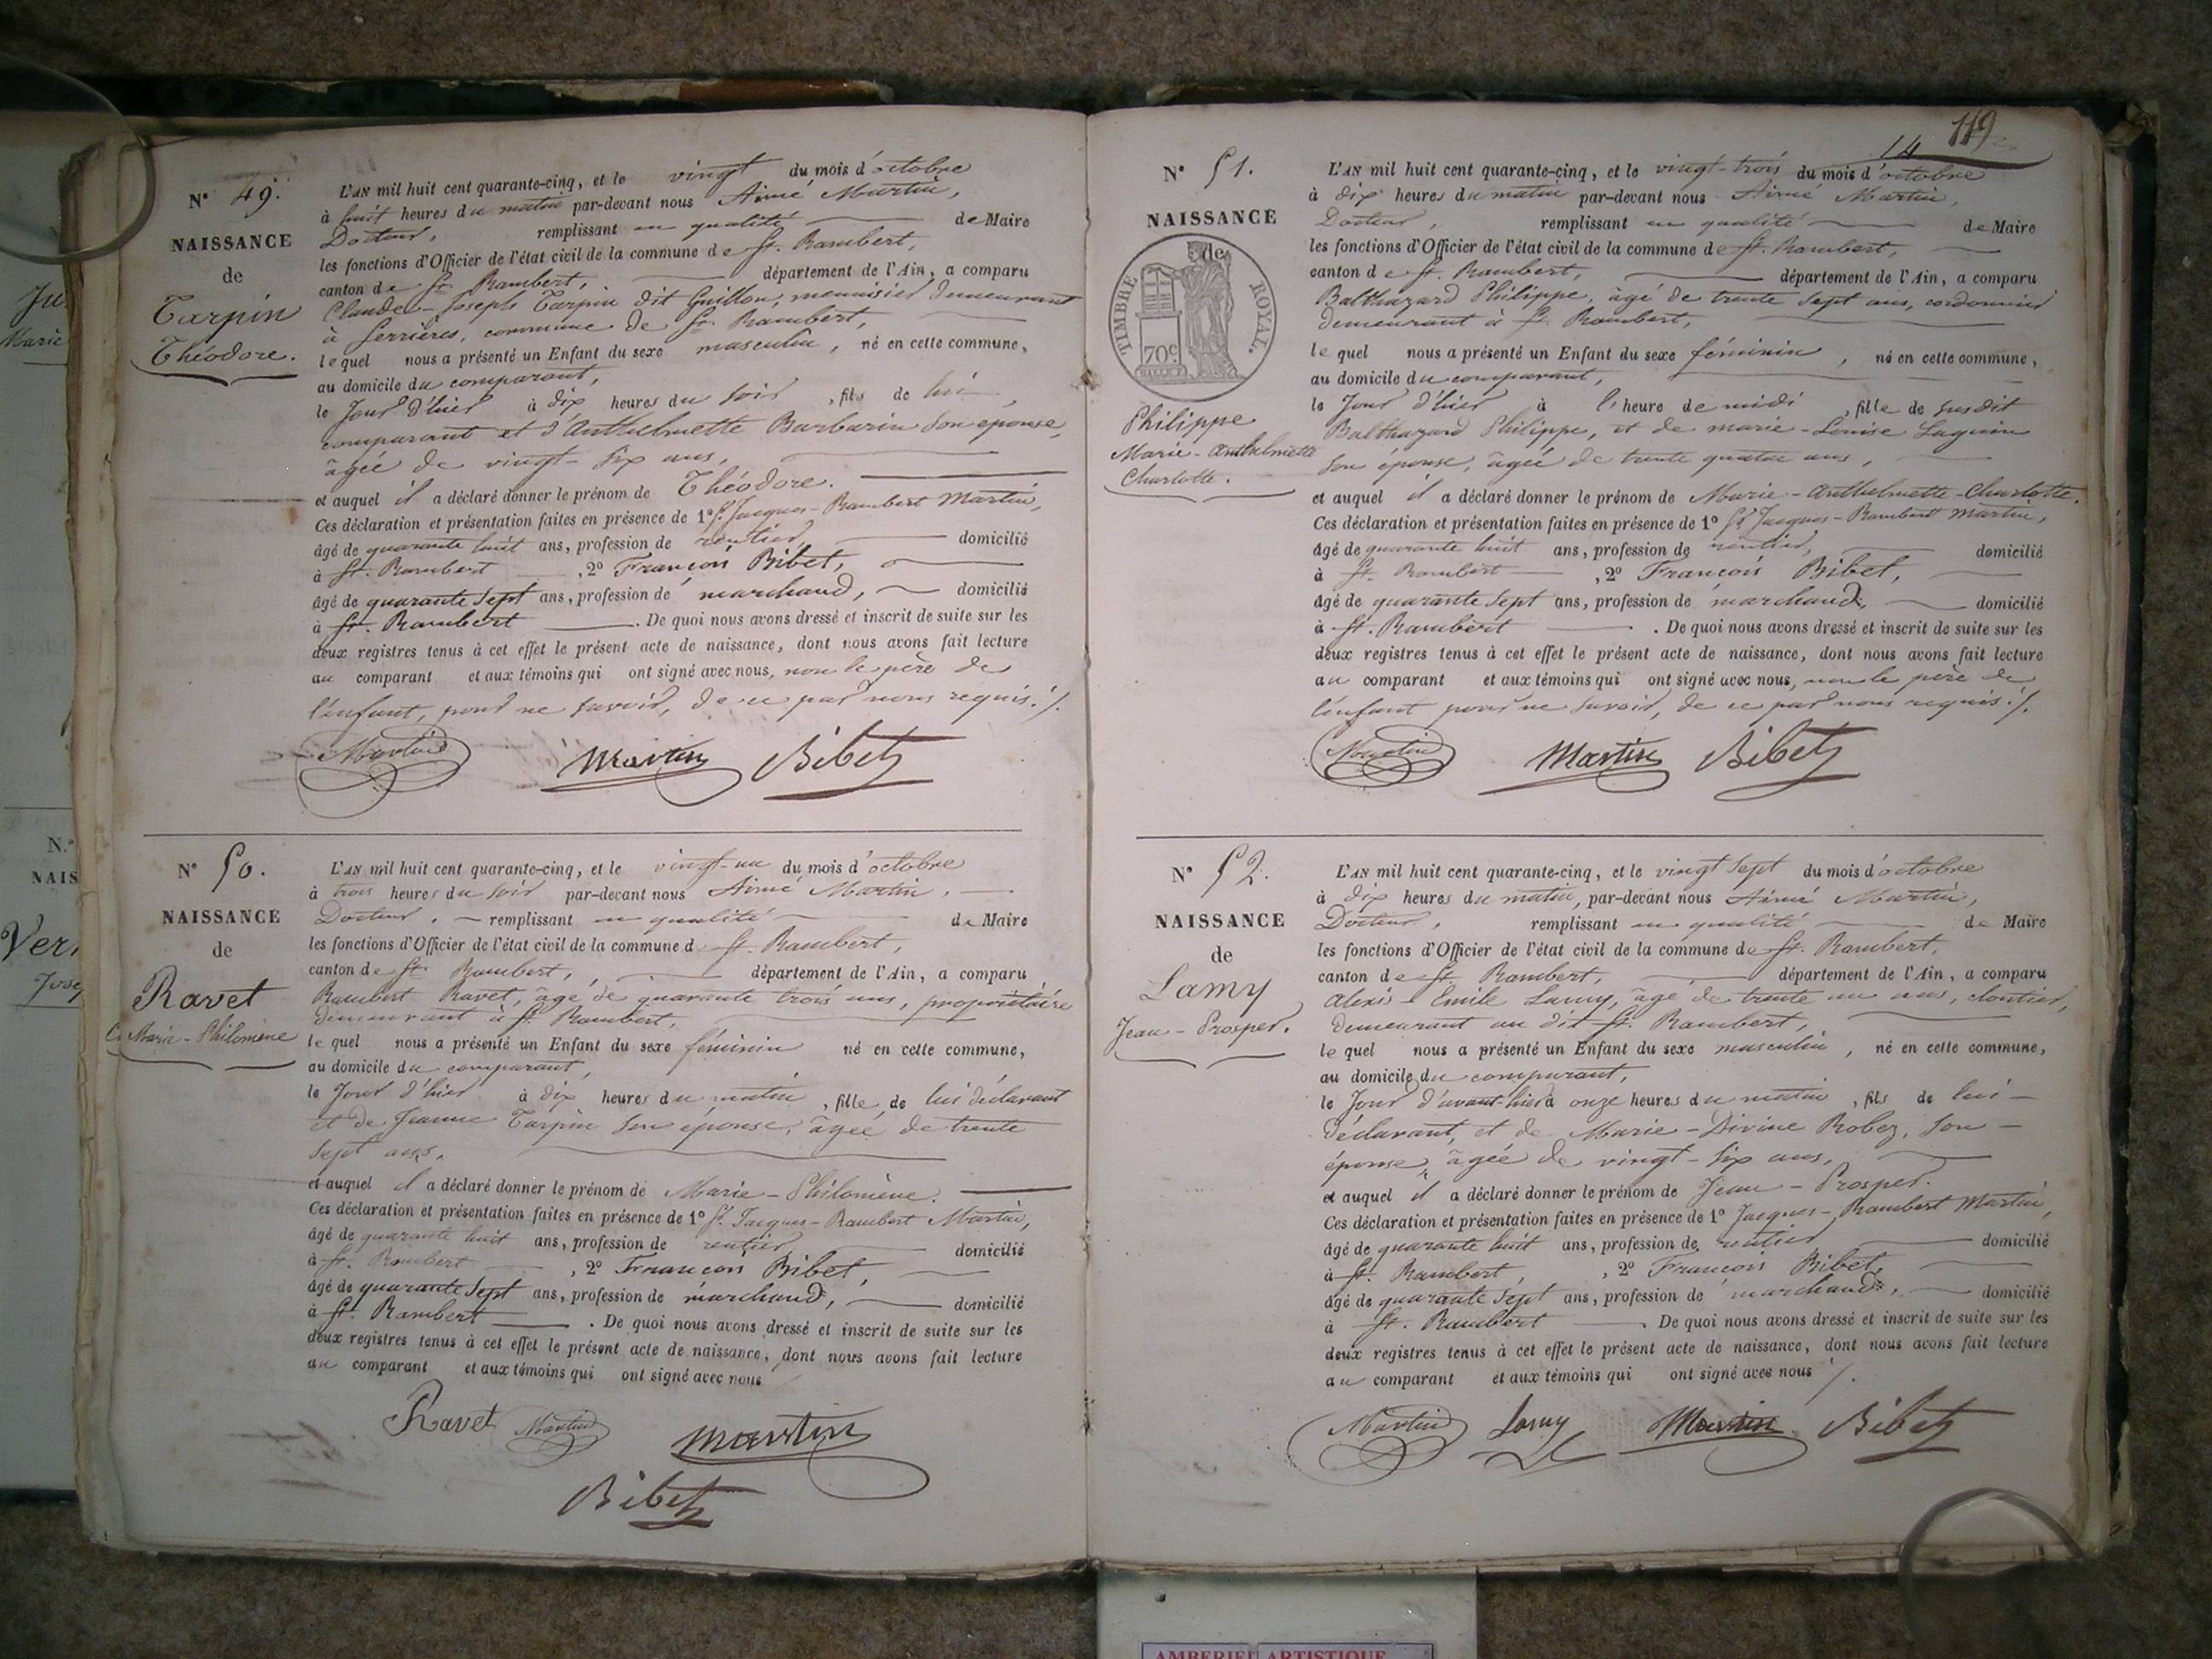 N° 49.
NAISSANCE
de
Tarpin
Théodore.
L'AN mil huit cent quarante-cinq, et le vingt du mois d'octobre
à huit heures du matin par-devant nous Aimé Martin,
Docteur, remplissant en qualité de Maire
les fonctions d'Officier de l'état civil de la commune de St. Rambert,
canton de St. Rambert, département de l'Ain, a comparu
Claude-Joseph Tarpin dit Guillon, menuisier demeurant
à Serrières, commune de St. Rambert,
lequel nous a présenté un Enfant du sexe masculin, né en cette commune,
au domicile du comparant,
le Jour d'hier à dix heures du soir, fils de lui
comparant et d'Anthelmette Barbarin son épouse,
âgée de vingt-six ans,
et auquel il a déclaré donner le prénom de Théodore.
Ces déclaration et présentation faites en présence de 1° Sr. Jacques-Rambert Martin,
âgé de quarante huit ans, profession de rentier, domicilié
à St. Rambert, 2° François Bibet,
âgé de quarante sept ans, profession de marchand, domicilié
à St. Rambert. De quoi nous avons dressé et inscrit de suite sur les
deux registres tenus à cet effet le présent acte de naissance, dont nous avons fait lecture
au comparant et aux témoins qui ont signé avec nous, non le père de
l'enfant, pour ne savoir, de ce par nous requis ./.
Martin Martin Bibet
N° 50.
NAISSANCE
de
Ravet
Marie-Philomène
L'AN mil huit cent quarante-cinq, et le vingt-un du mois d'octobre
à trois heures du soir par-devant nous Aimé Martin,
Docteur, remplissant en qualité de Maire
les fonctions d'Officier de l'état civil de la commune d St. Rambert,
canton de St. Rambert, département de l'Ain, a comparu
Rambert Ravet, âgé de quarante trois ans, propriétaire
demeurant à St. Rambert,
lequel nous a présenté un Enfant du sexe féminin né en cette commune,
au domicile du comparant,
le Jour d'hier à dix heures du matin, fille de lui déclarant
et de Jeanne Tarpin son épouse, âgée de trente
sept ans,
et auquel il a déclaré donner le prénom de Marie-Philomène.
Ces déclaration et présentation faites en présence de 1° Sr. Jacques-Rambert Martin,
âgé de quarante huit ans, profession de rentier domicilié
à St. Rambert, 2° François Bibet,
âgé de quarante sept ans, profession de marchand, domicilié
à St. Rambert. De quoi nous avons dressé et inscrit de suite sur les
deux registres tenus à cet effet le présent acte de naissance, dont nous avons fait lecture
au comparant et aux témoins qui ont signé avec nous
Ravet Martin Martin
Bibet
14 119
N° 51.
NAISSANCE
de
TIMBRE ROYAL.
70c
Philippe
Marie-Anthelmette
Charlotte.
L'AN mil huit cent quarante-cinq, et le vingt-trois du mois d'octobre
à dix heures du matin par-devant nous Aimé Martin,
Docteur, remplissant en qualité de Maire
les fonctions d'Officier de l'état civil de la commune de St. Rambert,
canton de St. Rambert, département de l'Ain, a comparu
Balthazard Philippe, âgé de trente sept ans, cordonnier
demeurant à St. Rambert,
lequel nous a présenté un Enfant du sexe féminin, né en cette commune,
au domicile du comparant,
le Jour d'hier à l'heure de midi, fille de susdit
Balthazard Philippe, et de marie-Louise
son épouse, âgée de trente quatre ans,
et auquel il a déclaré donner le prénom de Marie-Anthelmette-Charlotte.
Ces déclaration et présentation faites en présence de 1° Sr. Jacques-Rambert Martin,
âgé de quarante huit ans, profession de rentier, domicilié
à St. Rambert, 2° François Bibet,
âgé de quarante sept ans, profession de marchand, domicilié
à St. Rambert. De quoi nous avons dressé et inscrit de suite sur les
deux registres tenus à cet effet le présent acte de naissance, dont nous avons fait lecture
au comparant et aux témoins qui ont signé avec nous, non le père de
l'enfant pour ne savoir, de ce par nous requis ./.
Martin Martin Bibet
N° 52.
NAISSANCE
de
Lamy
Jean-Prosper.
L'AN mil huit cent quarante-cinq, et le vingt sept du mois d'octobre
à dix heures du matin, par-devant nous Aimé Martin,
Docteur, remplissant en qualité de Maire
les fonctions d'Officier de l'état civil de la commune de St. Rambert,
canton de St. Rambert, département de l'Ain, a comparu
Alexis-Emile Lamy, âgé de trente un ans, cloutier,
demeurant au dit St. Rambert,
lequel nous a présenté un Enfant du sexe masculin, né en cette commune,
au domicile du comparant,
le Jour d'avant-hier à onze heures du matin, fils de lui
déclarant, et de Marie-Divine Robez, son
épouse, âgée de vingt-six ans,
et auquel il a déclaré donner le prénom de Jean-Prosper.
Ces déclaration et présentation faites en présence de 1° Jacques-Rambert Martin,
âgé de quarante huit ans, profession de rentier domicilié
à St. Rambert, 2° François Bibet,
âgé de quarante sept ans, profession de marchand, domicilié
à St. Rambert. De quoi nous avons dressé et inscrit de suite sur les
deux registres tenus à cet effet le présent acte de naissance, dont nous avons fait lecture
au comparant et aux témoins qui ont signé avec nous ./.
Martin Lamy Martin Bibet
AMBERIEU ARTISTIQUE